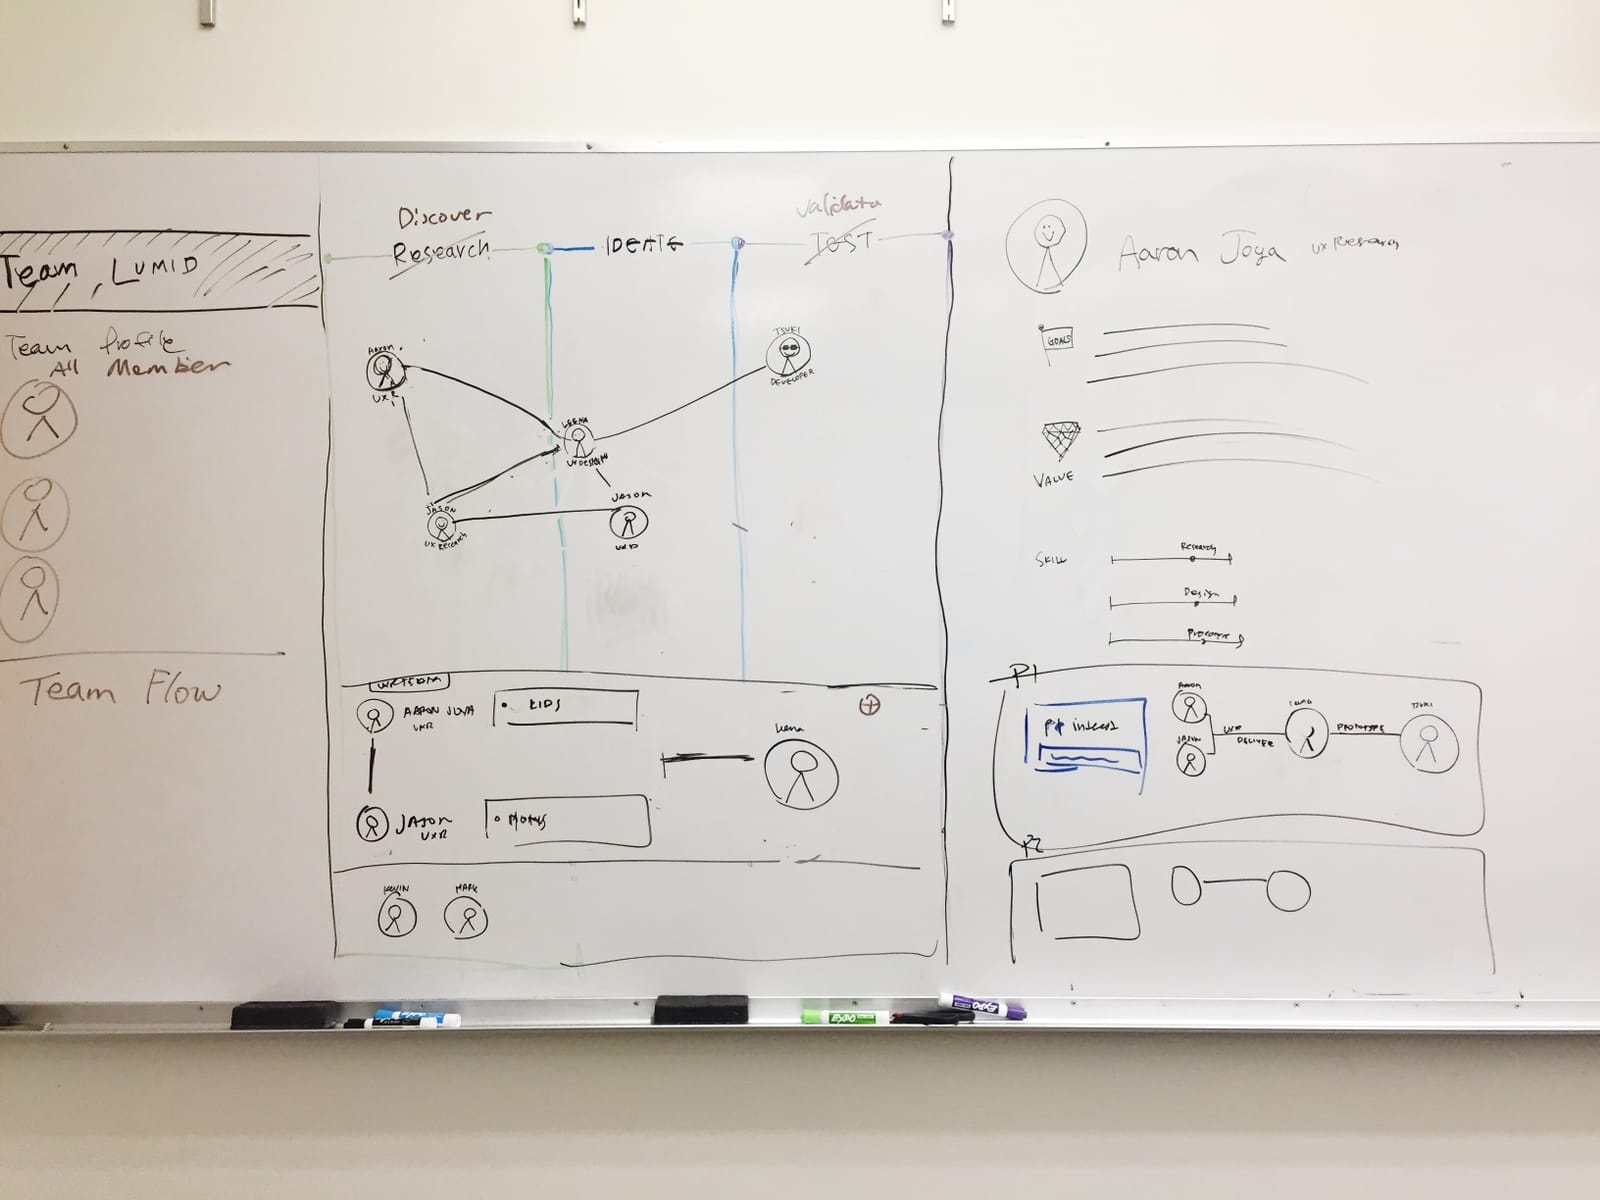 Team, LUMID
Team Profile
All Member
Team Flow
Discover
Research
IDEATE
Validate
TEST
Aaron
UXR
TSUKI
DEVELOPER
LEENA
UX DESIGN
JASON
UX Research
JASON
UXD
AARON JOYA
UXR
• KIDS
Leena
JASON
UXR
KEVIN
MARK
Aaron Joya UX Research
GOALS
VALUE
SKILL
Research
Design
Prototype
P1
AARON
JASON
UXR
DELIVER
PROTOTYPE
TSUKI
P2
EXPO
EXPO